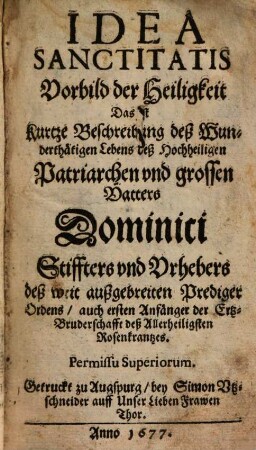 IDEA
SANCTITATIS
Vorbild der Heiligkeit
Das ist
Kurtze Beschreibung deß Wun-
derthätigen Lebens deß Hochheiligen
Patriarchen vnd grossen
Vatters
Dominici
Stiffters vnd Vrhebers
deß weit außgebreiten Prediger
Ordens / auch ersten Anfänger der Ertz-
Bruderschafft deß Allerheiligsten
Rosenkrantzes.
Permissu Superiorum.
Getruckt zu Augspurg / bey Simon Vtz-
schneider auff Unser Lieben Frawen
Thor.
Anno 1677.